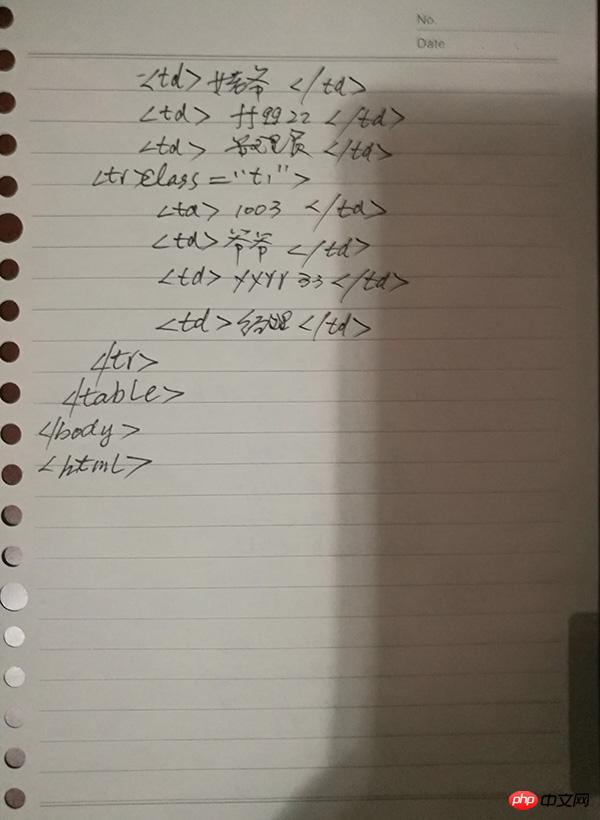 No.
Date
<td> </td>
<td> ff9922 </td>
<td> 管理员 </td>
<tr>class="t1">
<td> 1003 </td>
<td> 爷爷 </td>
<td> yyyy33 </td>
<td> 经理 </td>
</tr>
</table>
</body>
<html>
php 中文网